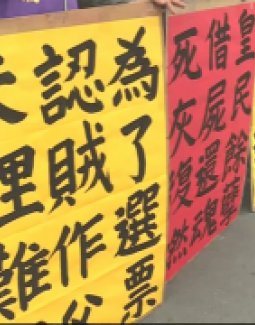 皇民餘孽
借屍還魂
死灰復燃
為了選票
認賊作父
天理難